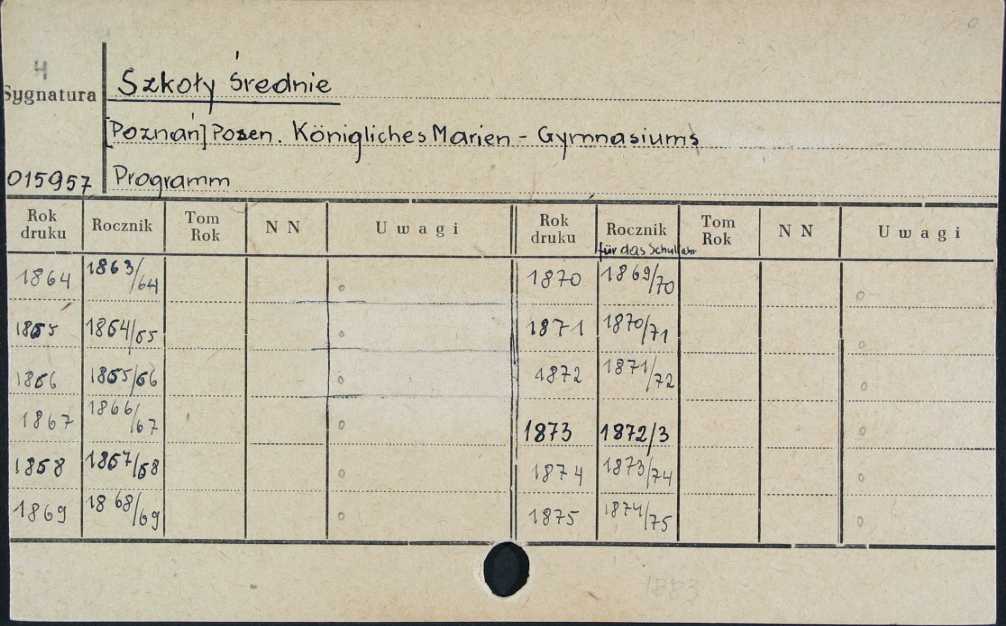 4
Sygnatura
Szkoły Średnie
[Poznań] Posen. Königliches Marien - Gymnasiums
015957 Programm
Rok druku Rocznik Tom Rok N N Uwagi Rok druku Rocznik für das Schuljahr Tom Rok N N Uwagi
1864 1863/64 1870 1869/70
1865 1864/65 1871 1870/71
1866 1865/66 1872 1871/72
1867 1866/67 1873 1872/3
1868 1867/68 1874 1873/74
1869 1868/69 1875 1874/75
1883